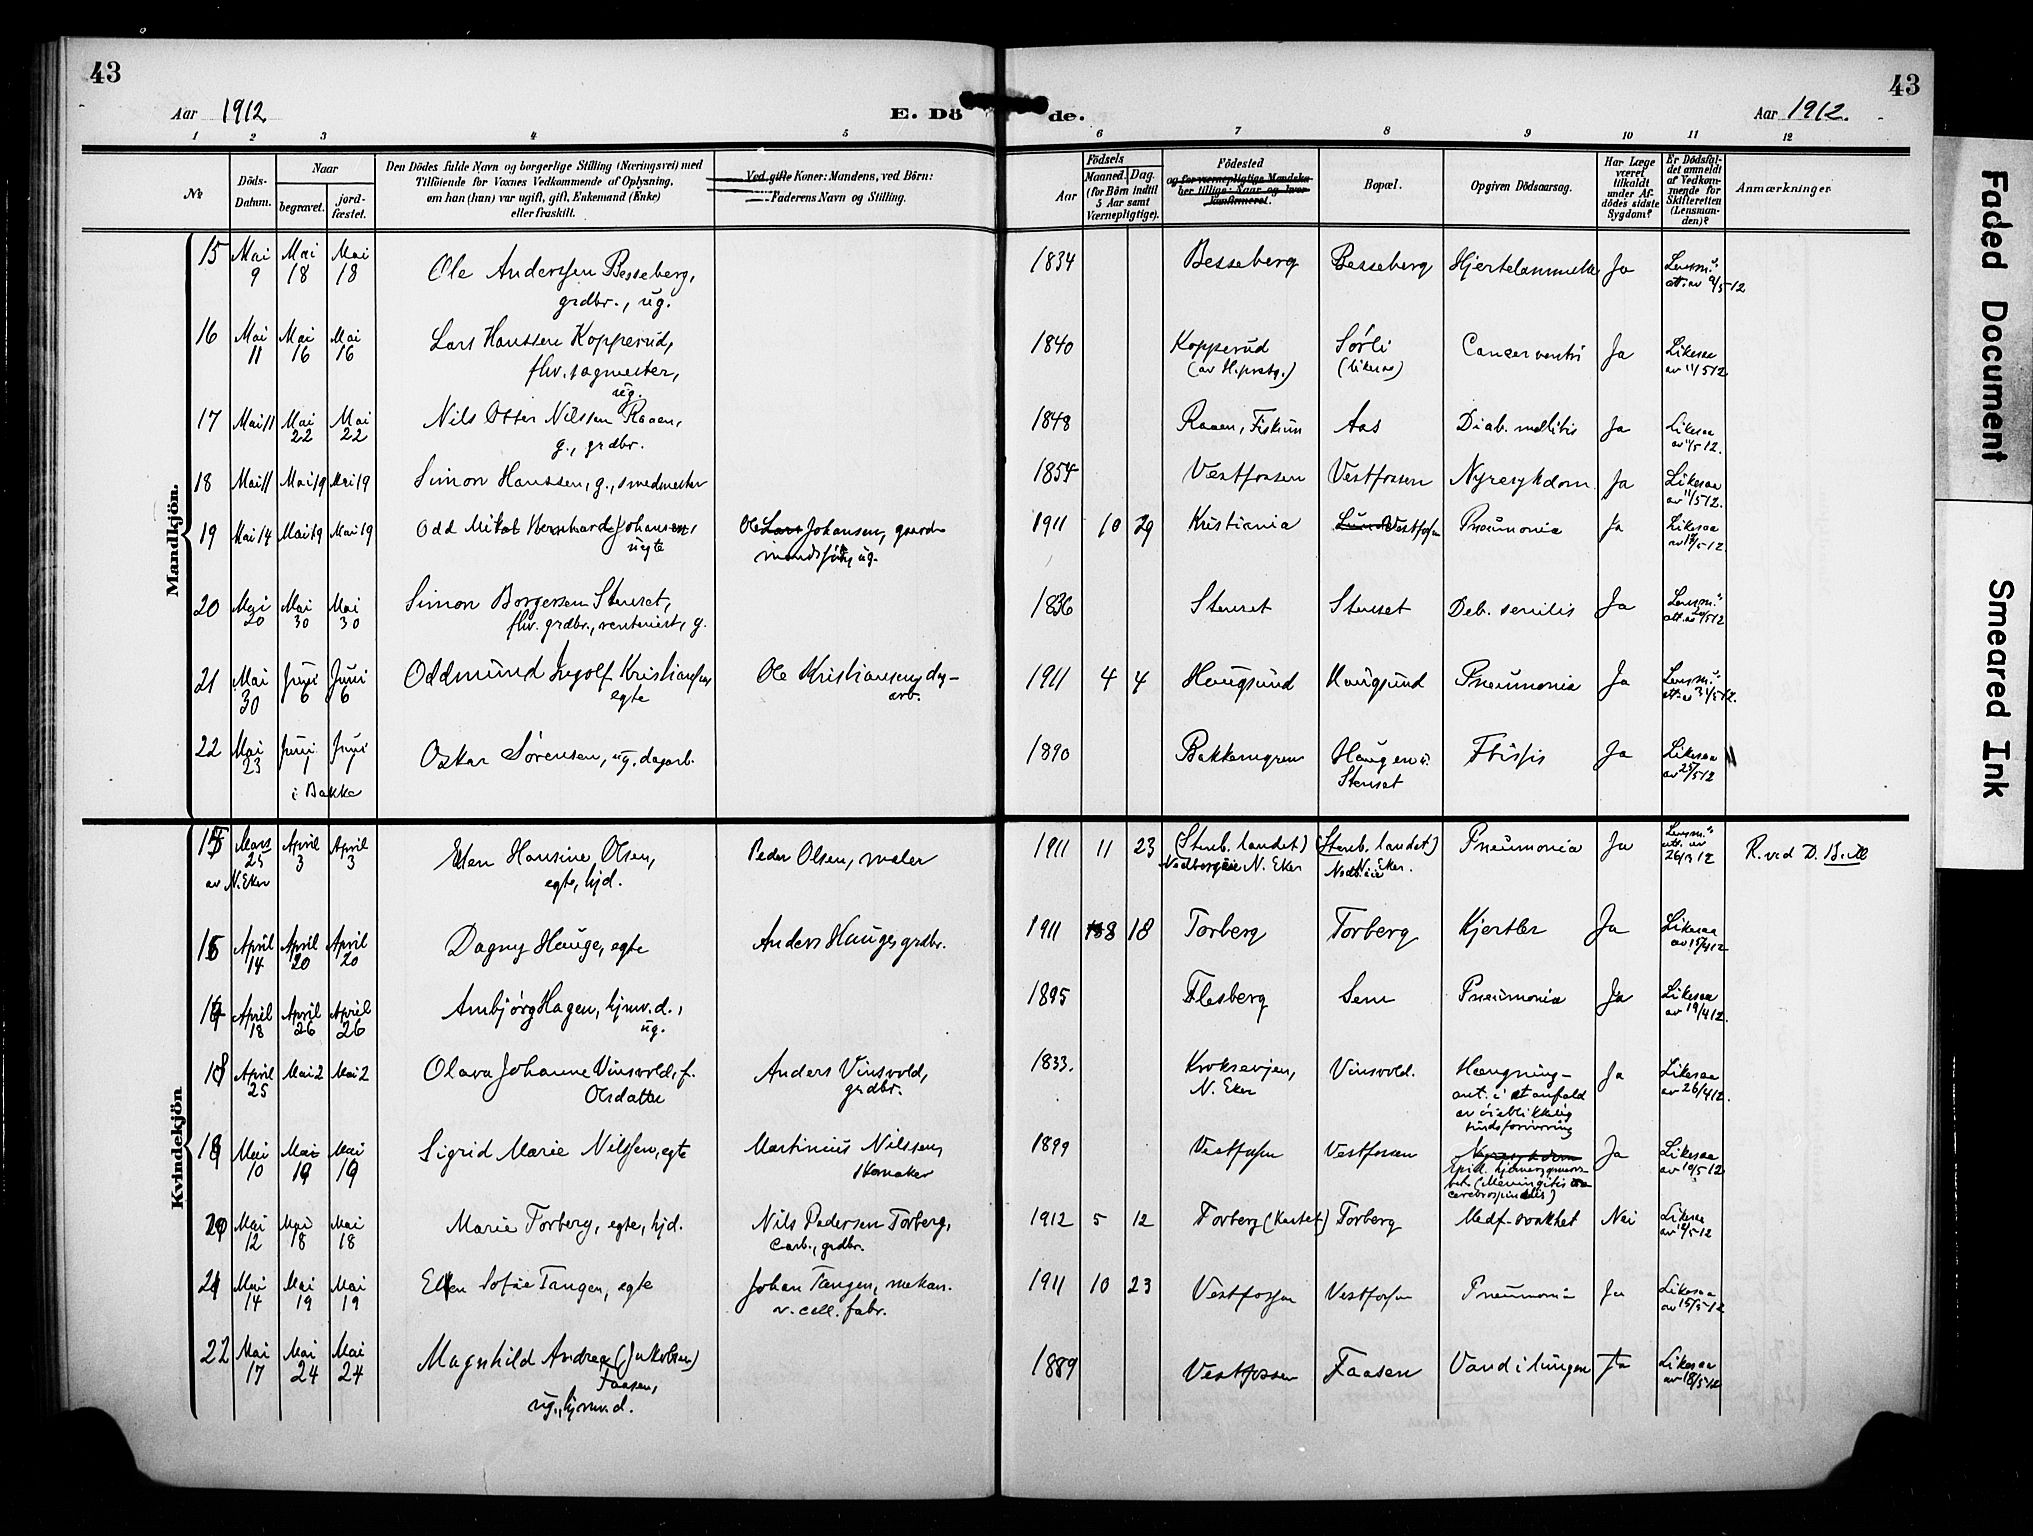 43
43
Aar 1912
E. Dö de.
Aar 1912.
1 2 3 4 5 6 7 8 9 10 11 12
№
Döds-Datum.
Naar
begravet.
jord-fæstet.
Den Dödes fulde Navn og borgerlige Stilling (Næringsvei) med
Tilföiende for Voxnes Vedkommende af Oplysning,
om han (hun) var ugift, gift, Enkemand (Enke)
eller fraskilt.
Ved gifte Koner: Mandens, ved Börn:
Faderens Navn og Stilling.
Aar
Födsels
Maaned. Dag.
(for Börn indtil
5 Aar samt
Værnepligtige).
Födested
og for værnepligtige Mandska-
ber tillige: Naar og hvor
konfirmeret.
Bopæl.
Opgiven Dödsaarsag.
Har Læge
været
tilkaldt
under Af-
dödes sidste
Sygdom?
Er Dödsfal-
det anmeldt
af Vedkom-
mende for
Skifteretten
(Lensman-
den)?
Anmærkninger
Mandkjön.
15 Mai 9 Mai 18 Mai 18 Ole Anderssen Besseberg, grdbr., ug. 1834 Besseberg Besseberg Ja Lensm.s att. av 9/5 12
16 Mai 11 Mai 16 Mai 16 Lars Hanssen Kopperud, fhv. sagmester, ug. 1840 Kopperud Sørli (Likesaa) Cancer ventri Ja Likesaa av 11/5 12
17 Mai 11 Mai 22 Mai 22 Nils Otter Nilssen Raaen, g., grdbr. 1848 Raaen, Fiskum Aas Diab. mellitis Ja Likesaa
18 Mai 11 Mai 19 Mai 19 Simon Hanssen, g., smedmester 1854 Vestfossen Vestfossen Nyresykdom Ja Likesaa av 11/5 12.
19 Mai 14 Mai 19 Mai 19 Odd Mikal Bernhard Johansen, uegte Ole Lars Johansen, gaard- ug. 1911 10 29 Kristiania Vestfossen Pneumonia Ja Likesaa
20 Mai 20 Mai 30 Mai 30 Simon Borgersen Stenset, fhv. grdbr., rentenist, g. 1836 Stenset Stenset Deb. senilis Ja Lensm.s att. av 20/5 12
21 Mai 30 Juni 6 Juni 6 Oddmund Ingolf Kristiansen, egte Ole Kristiansen, dag-arb. 1911 4 4 Hougsund Hougsund Pneumonia Ja Lensm.s att. av 31/5 12.
22 Mai 23 Juni 1 Juni 1 i Bakke Oskar Sørensen, ug. dagarb. 1890 Bakkemyren Haugen u. Stenset Ftisis Ja Likesaa av 25/5 12
Kvindekjön
15 av N. Eker Mars 25 April 3 April 3 Ellen Hansine Olsen, egte, hjd. Peder Olsen, maler 1911 11 23 (Stenb. landet) N. Eker (Stenb. landet) N. Eker. Pneumonia Ja Lensm.s att. av 26/3 12 R. ved D.
16 April 14 April 20 April 20 Dagny Hauge, egte Anders Hauge, grdbr. 1911 8 18 Torberg Torberg Kjertler Ja Likesaa av 15/4 12
17 April 18 April 26 April 26 Ambjørg Hagen, hjmv. d., ug. 1895 Flesberg Sem Pneumonia Ja Likesaa av 19/4 12.
18 April 25 Mai 2 Mai 2 Olava Johanne Vinsvold, f. Olsdatter Anders Vinsvold, grdbr. 1833. N. Eker Vinsvold. Hængning- ant. i et anfald av øieblikkelig sindsforvirring Ja Likesaa av 26/4 12.
19 Mai 10 Mai 19 Mai 19 Sigrid Marie Nilssen, egte Martinius Nilssen, skomaker 1899 Vestfossen Vestfossen Nyresykdom Epid. (Meningitis cerebrospinalis) Ja Likesaa av 10/5 12
20 Mai 12 Mai 18 Mai 18 Marie Torberg, egte, hjd. Nils Pedersen Torberg, grdbr. 1912 5 12 Torberg Torberg Medf. svakhet Nei Likesaa av 12/5 12
21 Mai 14 Mai 19 Mai 19 Ellen Sofie Tangen, egte Johan Tangen, mekan. v. cell. fabr. 1911 10 23 Vestfossen Vestfossen Pneumonia Ja Likesaa av 15/5 12
22 Mai 17 Mai 24 Mai 24 Magnhild Andrea (Jakobsen) Faasen, ug., hjmv. d. 1889 Vestfossen Faasen Vand i lungen Ja Likesaa av 18/5 12
Faded Document
Smeared Ink